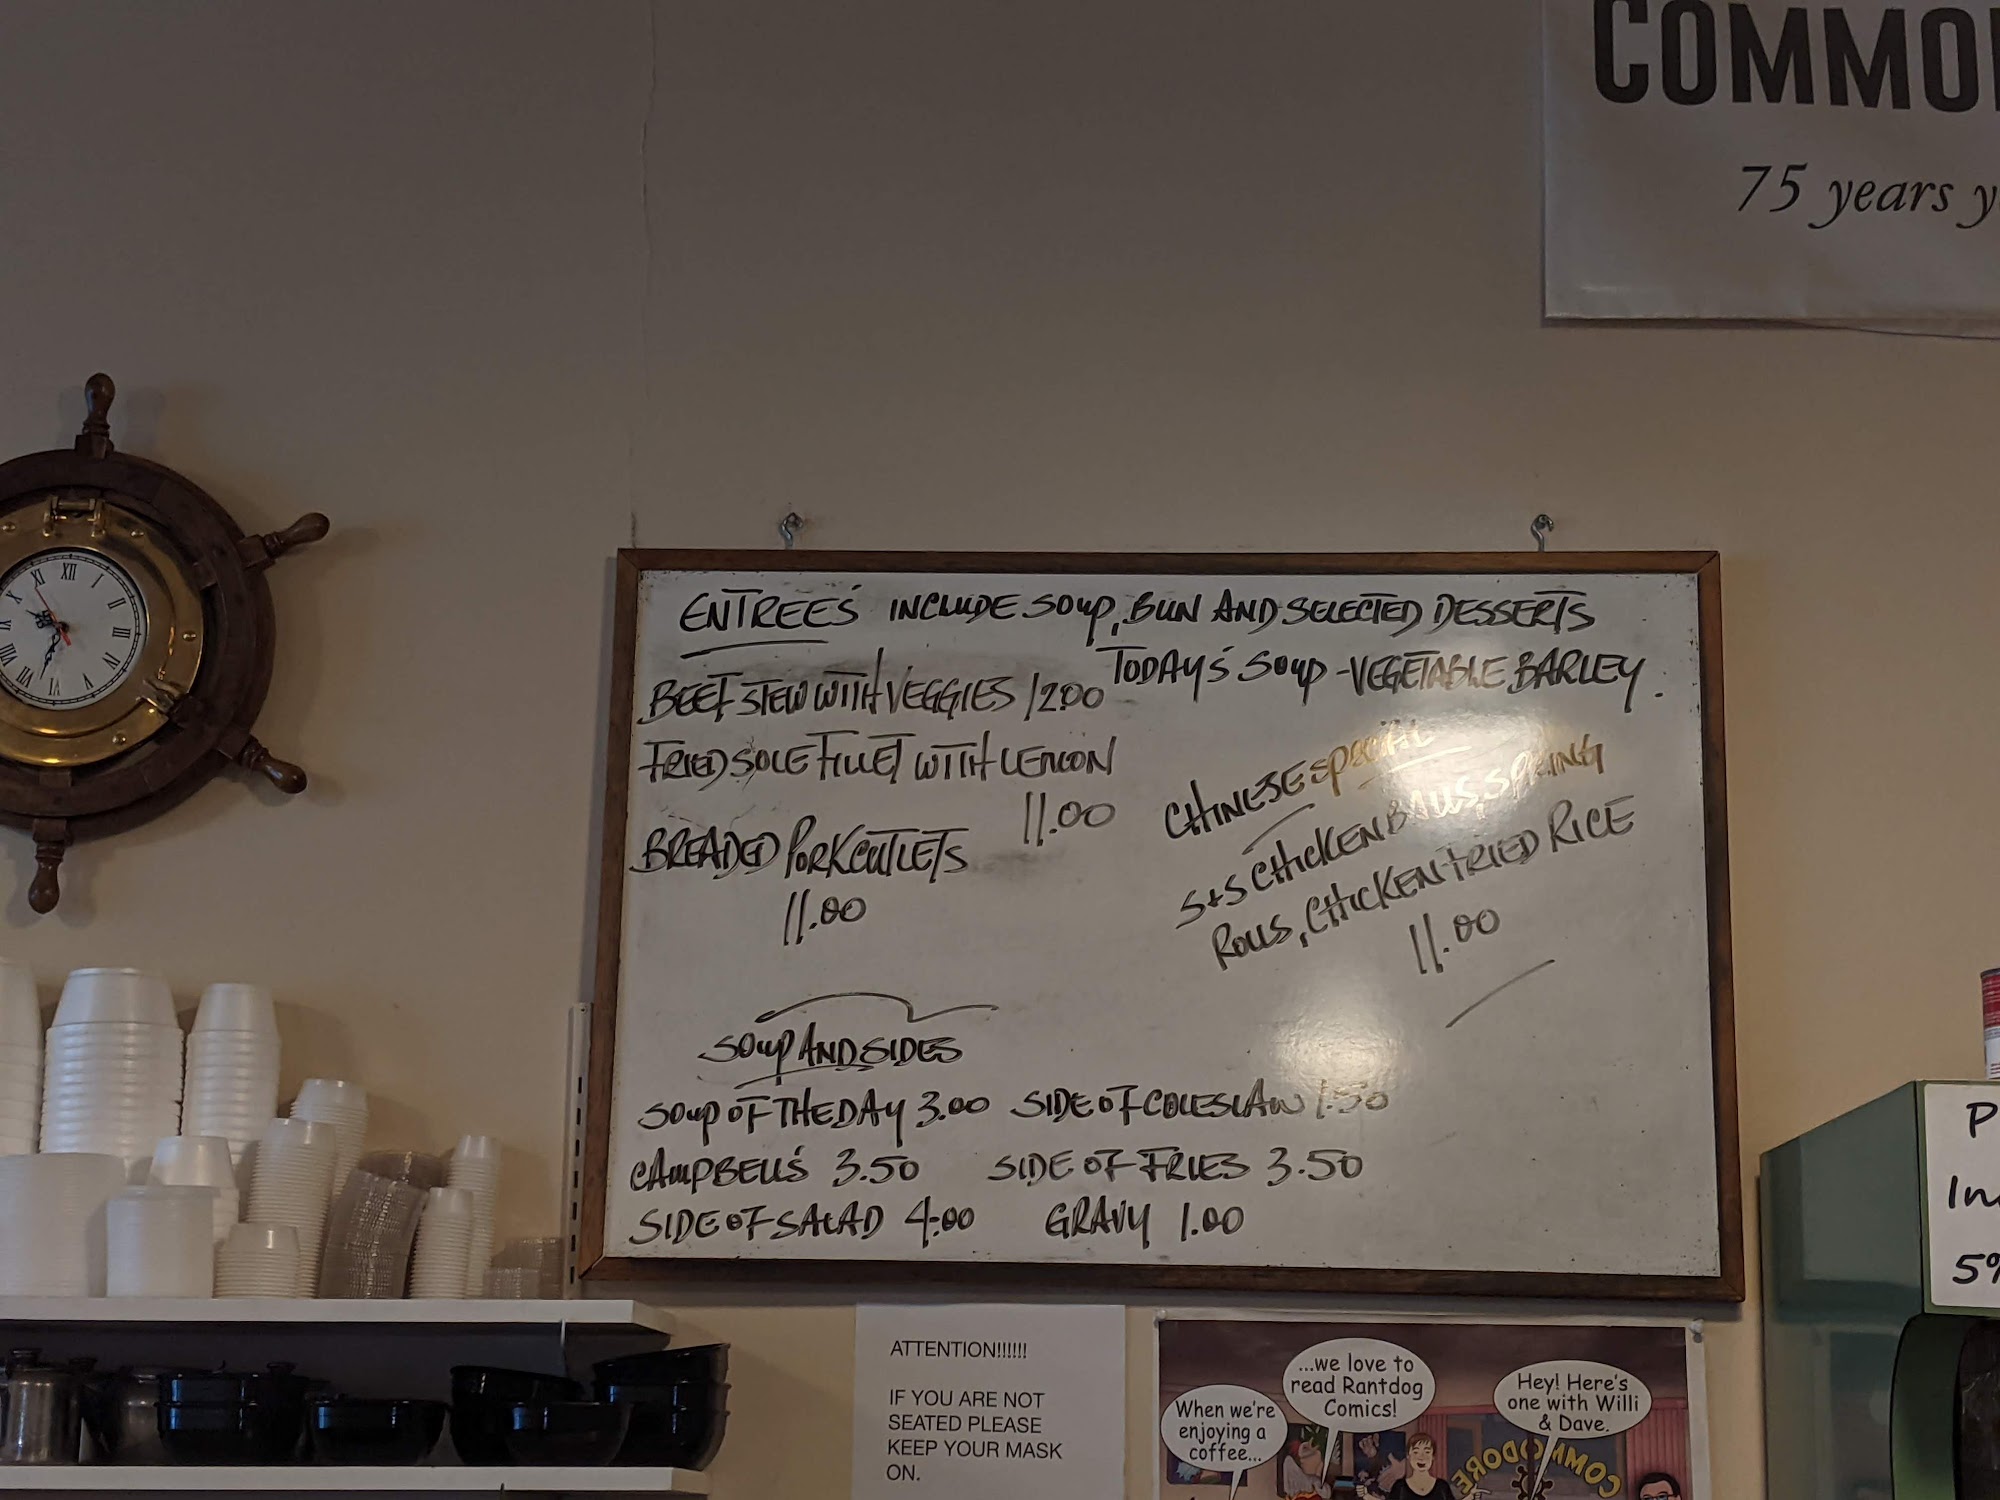 COMMO
75 years y
ENTREES INCLUDE SOUP, BUN AND SELECTED DESSERTS
TODAY'S SOUP - VEGETABLE BARLEY.
BEEF STEW WITH VEGGIES 12.00
FRIED SOLE FILLET WITH LEMON
11.00
BREADED PORK CUTLETS
11.00
CHINESE SPECIAL
S+S CHICKEN BALLS, SPRING
ROLLS, CHICKEN FRIED RICE
11.00
SOUP AND SIDES
SOUP OF THE DAY 3.00 SIDE OF COLESLAW 1.50
CAMPBELL'S 3.50 SIDE OF FRIES 3.50
SIDE OF SALAD 4.00 GRAVY 1.00
XII I II III IV V VI VII VIII IX X XI
P
In
5%
ATTENTION!!!!!!
IF YOU ARE NOT
SEATED PLEASE
KEEP YOUR MASK
ON.
When we're
enjoying a
coffee...
...we love to
read Rantdog
Comics!
Hey! Here's
one with Willi
& Dave.
COMMODORE